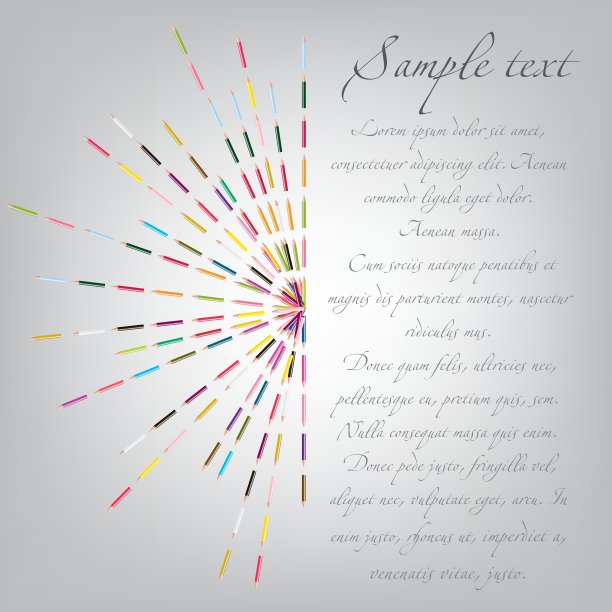 Sample text
Lorem ipsum dolor sit amet,
consectetuer adipiscing elit. Aenean
commodo ligula eget dolor.
Aenean massa.
Cum sociis natoque penatibus et
magnis dis parturient montes, nascetur
ridiculus mus.
Donec quam felis, ultricies nec,
pellentesque eu, pretium quis, sem.
Nulla consequat massa quis enim.
Donec pede justo, fringilla vel,
aliquet nec, vulputate eget, arcu. In
enim justo, rhoncus ut, imperdiet a,
venenatis vitae, justo.